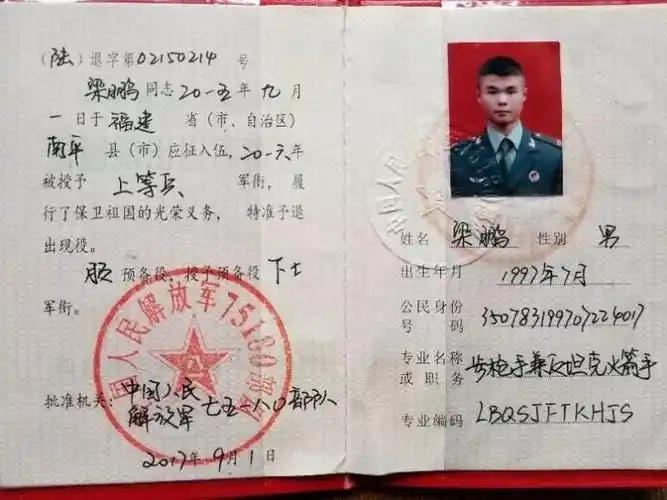 (陆)退字第02150214号
梁鹏同志二〇一五年九月
一日于福建省(市、自治区)
南平县(市)应征入伍,二〇一六年
被授予上等兵军衔,履
行了保卫祖国的光荣义务,特准予退
出现役。
服预备役,授予预备役下士
军衔。
批准机关:中国人民
解放军七五一八〇部队
2017年9月1日
国人民解放军75180部队
姓名 梁鹏 性别 男
出生年月 1997年7月
公民身份
号码 350783199707224017
专业名称
或职务 步枪手兼反坦克火箭手
专业编码 LBQSJFTKHJS